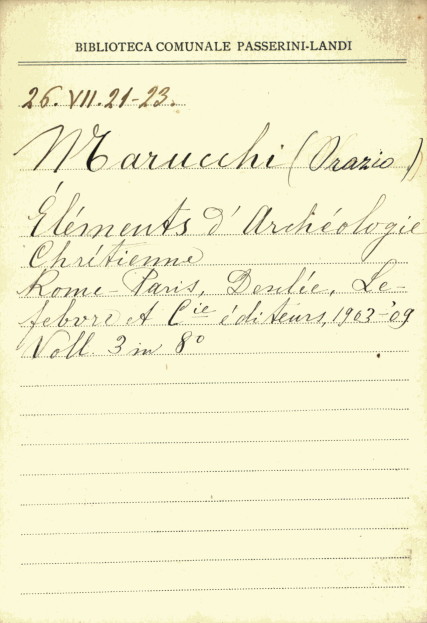 BIBLIOTECA COMUNALE PASSERINI-LANDI
26.VII.21-23.
Marucchi (Orazio)
Éléments d'Archéologie
Chrétienne
Rome-Paris, Desclée, Le-
febvre et Cie éditeurs, 1903-'09
Voll. 3 in 8º